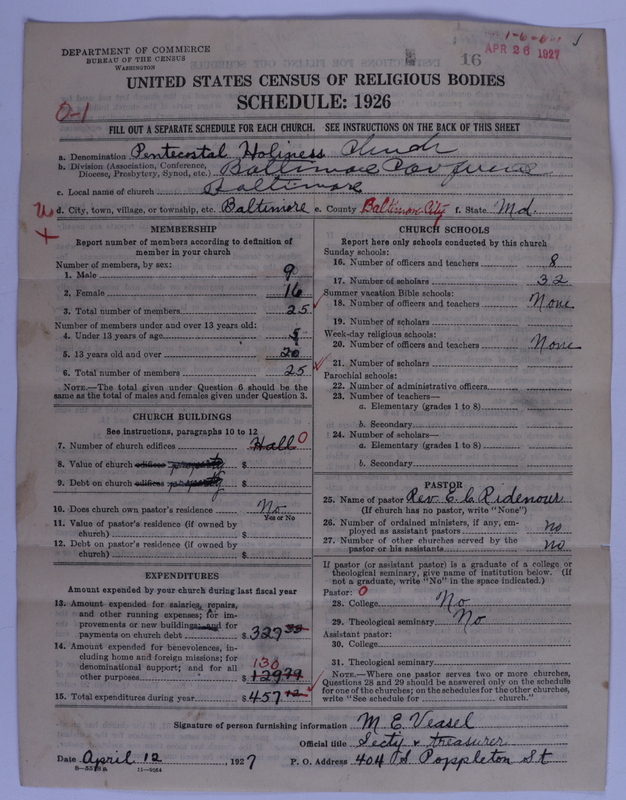 DEPARTMENT OF COMMERCE
BUREAU OF THE CENSUS
WASHINGTON
16
APR 26 1927
UNITED STATES CENSUS OF RELIGIOUS BODIES
SCHEDULE: 1926
0-1
FILL OUT A SEPARATE SCHEDULE FOR EACH CHURCH. SEE INSTRUCTIONS ON THE BACK OF THIS SHEET
a. Denomination Pentecostal Holiness Church
b. Division (Association, Conference, Diocese, Presbytery, Synod, etc.) Baltimore Conference
c. Local name of church Baltimore
d. City, town, village, or township, etc. Baltimore e. County Baltimore City f. State Md.
MEMBERSHIP
Report number of members according to definition of
member in your church
Number of members, by sex:
1. Male 9
2. Female 16
3. Total number of members 25
Number of members under and over 13 years old:
4. Under 13 years of age 5
5. 13 years old and over 20
6. Total number of members 25
NOTE.—The total given under Question 6 should be
same as the total of males and females given under Question 3.
CHURCH BUILDINGS
See instructions, paragraphs 10 to 12
7. Number of church edifices Hall 0
8. Value of church edifices property $
9. Debt on church edifices property $
10. Does church own pastor's residence No
Yes or No
11. Value of pastor's residence (if owned by
church) $
12. Debt on pastor's residence (if owned by
church) $
EXPENDITURES
Amount expended by your church during last fiscal year
13. Amount expended for salaries, repairs,
and other running expenses; for im-
provements or new buildings; and for
payments on church debt $ 327 33
14. Amount expended for benevolences, in-
cluding home and foreign missions; for
denominational support; and for all
other purposes $ 129 79
130
15. Total expenditures during year $ 457 12
CHURCH SCHOOLS
Report here only schools conducted by this church
Sunday schools:
16. Number of officers and teachers 8
17. Number of scholars 32
Summer vacation Bible schools:
18. Number of officers and teachers None
19. Number of scholars
Week-day religious schools:
20. Number of officers and teachers None
21. Number of scholars
Parochial schools:
22. Number of administrative officers
23. Number of teachers—
a. Elementary (grades 1 to 8)
b. Secondary
24. Number of scholars—
a. Elementary (grades 1 to 8)
b. Secondary
PASTOR
25. Name of pastor Rev. E. C. Ridenour
(If church has no pastor, write "None")
26. Number of ordained ministers, if any, em-
ployed as assistant pastors No
27. Number of other churches served by the
pastor or his assistants No
If pastor (or assistant pastor) is a graduate of a college or
theological seminary, give name of institution below. (If
not a graduate, write "No" in the space indicated.)
Pastor: 0
28. College No
29. Theological seminary No
Assistant pastor:
30. College
31. Theological seminary
NOTE.—Where one pastor serves two or more churches,
Questions 28 and 29 should be answered only on the schedule
for one of the churches; on the schedules for the other churches,
write "See schedule for church."
Signature of person furnishing information M. E. Veasel
Official title Secty & treasurer
Date April 12, 1927 P. O. Address 404 S Poppleton St
11—9054